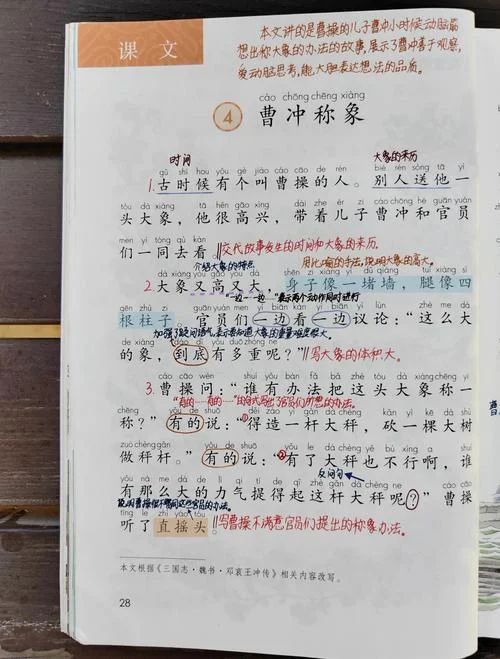 课文
本文讲的是曹操的儿子曹冲小时候动脑筋
想出称大象的办法的故事,展示了曹冲善于观察,
爱动脑思考,能大胆表达想法的品质。
cáo chōng chēng xiàng
4 曹冲称象
时间 大象的来历
gǔ shí hou yǒu gè jiào cáo cāo de rén bié rén sòng tā yì
1.古时候有个叫曹操的人。别人送他一
tóu dà xiàng tā hěn gāo xìng dài zhe ér zi cáo chōng hé guān yuán
头大象,他很高兴,带着儿子曹冲和官员
men yì tóng qù kàn
们一同去看。∥交代故事发生的时间和大象的来历。
介绍大象的特点 用比喻的手法,说明大象的高大。
dà xiàng yòu gāo yòu dà shēn zi xiàng yì dǔ qiáng tuǐ xiàng sì
2.大象又高又大,身子像一堵墙,腿像四
“一边…一边…”表示两个动作同时进行
gēn zhù zi guān yuán men yì biān kàn yì biān yì lùn zhè me dà
根柱子。官员们一边看一边议论:“这么大
de xiàng dào dǐ yǒu duō zhòng ne
的象,到底有多重呢?”∥写大象的体积大。
cáo cāo wèn shuí yǒu bàn fǎ bǎ zhè tóu dà xiàng chēng yì
3.曹操问:“谁有办法把这头大象称一
chēng yǒu de shuō děi zào yì gǎn dà chèng kǎn yì kē dà shù
称?”有的说:“①得造一杆大秤,砍一棵大树
zuò chèng gǎn yǒu de shuō yǒu le dà chèng yě bù xíng a shuí
做秤杆。”有的说:“②有了大秤也不行啊,谁
反问句
yǒu nà me dà de lì qi tí de qǐ zhè gǎn dà chèng ne cáo cāo
有那么大的力气提得起这杆大秤呢?”曹操
tīng le zhí yáo tóu
听了直摇头。∥写曹操不满意官员们提出的称象办法。
本文根据《三国志·魏书·邓哀王冲传》相关内容改写。
28